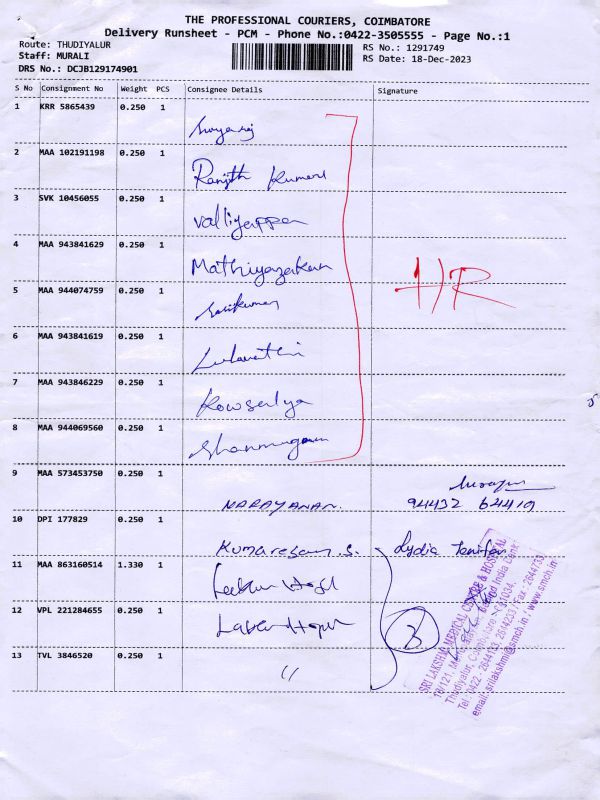 THE PROFESSIONAL COURIERS, COIMBATORE
Delivery Runsheet - PCM - Phone No.:0422-3505555 - Page No.:1
Route: THUDIYALUR
Staff: MURALI
DRS No.: DCJB129174901
RS No.: 1291749
RS Date: 18-Dec-2023
S No Consignment No Weight PCS Consignee Details Signature
1 KRR 5865439 0.250 1
2 MAA 102191198 0.250 1 Ranjith Kumar
3 SVK 10456055 0.250 1 Valliyappan
4 MAA 943841629 0.250 1 Mathiyazakan
5 MAA 944074759 0.250 1
6 MAA 943841619 0.250 1
7 MAA 943846229 0.250 1 Kowsalya
8 MAA 944069560 0.250 1 Shanmugam
9 MAA 573453750 0.250 1 NARAYANAN. 94432 64419
10 DPI 177829 0.250 1 Kumaresan. S. Lydia
11 MAA 863160514 1.330 1
12 VPL 221284655 0.250 1
13 TVL 3846520 0.250 1 "
3
SRI LAKSHMI MEDICAL CENTRE & HOSPITAL
18/121,
Thudiyalur, Coimbatore - 641034.
Tel : 0422 - 2644133, Fax - 2644733
email: srilakshmi@smch.in / www.smch.in